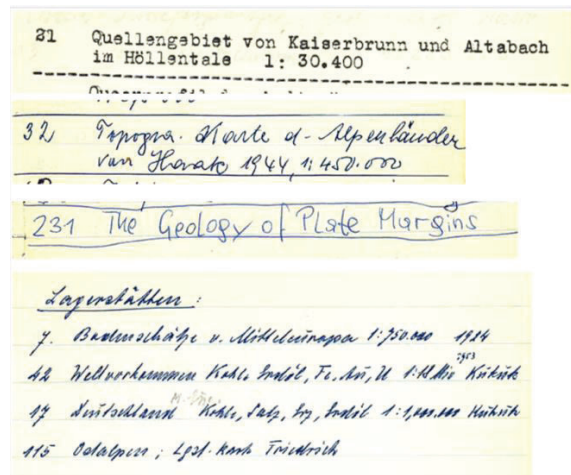 21 Quellengebiet von Kaiserbrunn und Altabach
im Höllentale 1: 30.400
32 Topogra. Karte d. Alpenländer
von Horak 1944, 1:450.000
231 The Geology of Plate Margins
Lagerstätten:
7. Bodenschätze v. Mitteleuropa 1:750.000 1924
42 Weltvorkommen Kohle Erdöl, Fe, Au, U 1: Kukuk
1953
M. Eur.
17 Deutschland Kohle, Salz, Erz, Erdöl 1:1,000.000 Kukuk
115 Ostalpen; Lgst. Karte Friedrich